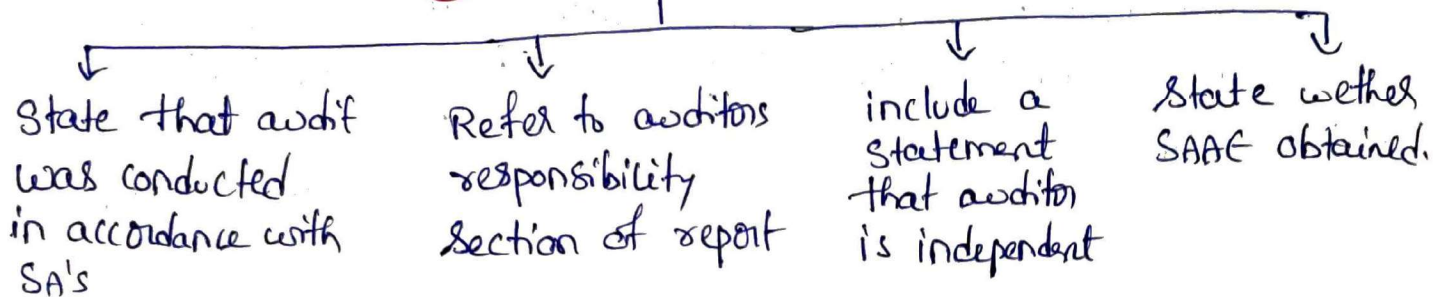 State that audit
was conducted
in accordance with
SA's
Refer to auditors
responsibility
Section of report
include a
Statement
that auditor
is independent
State wether
SAAE obtained.